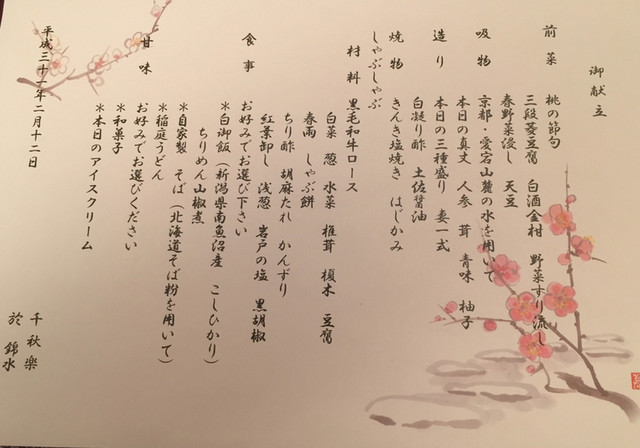 御献立
前菜 桃の節句
三段菱豆腐 白酒金柑 野菜すり流し
春野菜浸し 天豆
吸物 京都・愛宕山麓の水を用いて
本日の真丈 人参 茸 青味 柚子
造り 本日の三種盛り 妻一式
白凝り酢 土佐醤油
焼物 きんき塩焼き はじかみ
しゃぶしゃぶ
材料 黒毛和牛ロース
白菜 葱 水菜 椎茸 榎木 豆腐
春雨 しゃぶ餅
ちり酢 胡麻たれ かんずり
紅葉卸し 浅葱 岩戸の塩 黒胡椒
食事 お好みでお選び下さい
＊白御飯（新潟県南魚沼産 こしひかり）
ちりめん山椒煮
＊自家製 そば（北海道そば粉を用いて）
＊稲庭うどん
甘味 お好みでお選びください
＊和菓子
＊本日のアイスクリーム
平成三十一年二月十二日
千秋楽
於 錦水